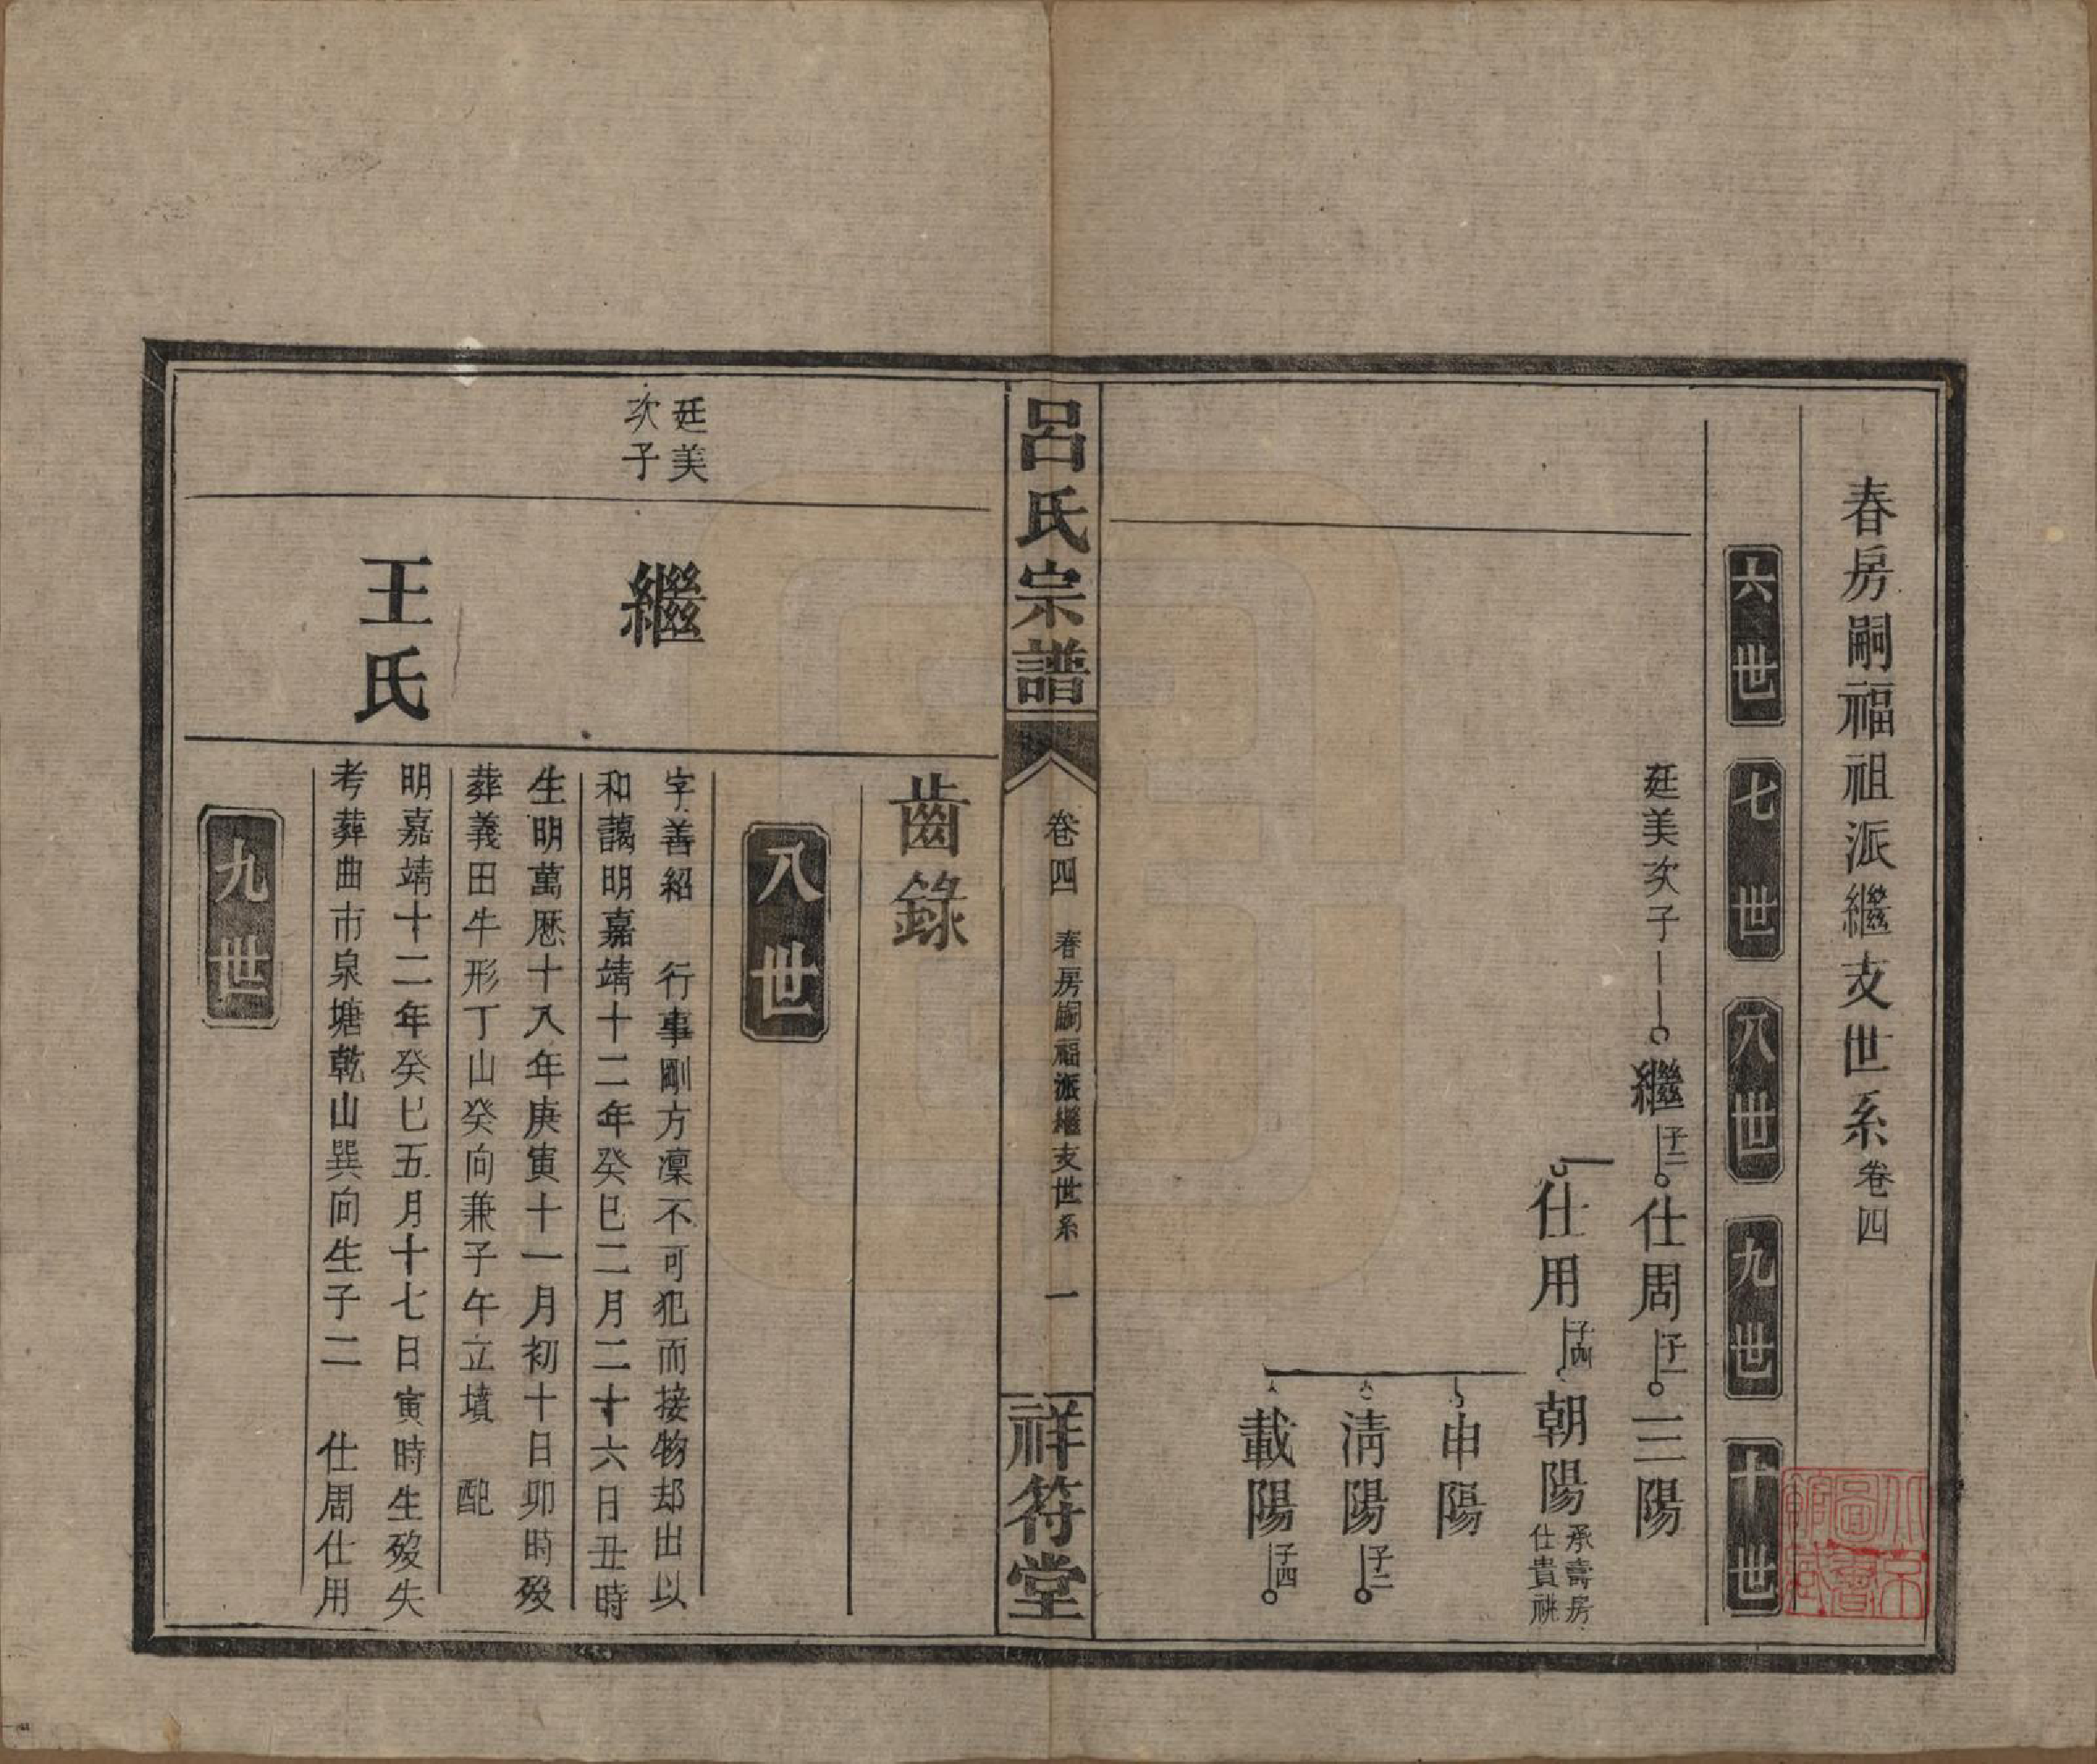 春房嗣福祖派繼支世系卷四
六世 七世 八世 九世 十世
廷美次子 繼 子二 仕周 子一 三陽
仕用 子四 朝陽 承壽房仕貴祧
申陽
淸陽 子二
載陽 子四
呂氏宗譜 卷四 春房嗣福派繼支世系 一 祥符堂
齒錄
八世
廷美次子
繼
字善紹 行事剛方凜不可犯而接物却出以
和藹明嘉靖十二年癸巳二月二十六日丑時
生明萬歷十八年庚寅十一月初十日卯時歿
葬義田牛形丁山癸向兼子午立墳 配
王氏
明嘉靖十二年癸巳五月十七日寅時生歿失
考葬曲市泉塘乾山巽向生子二 仕周仕用
九世